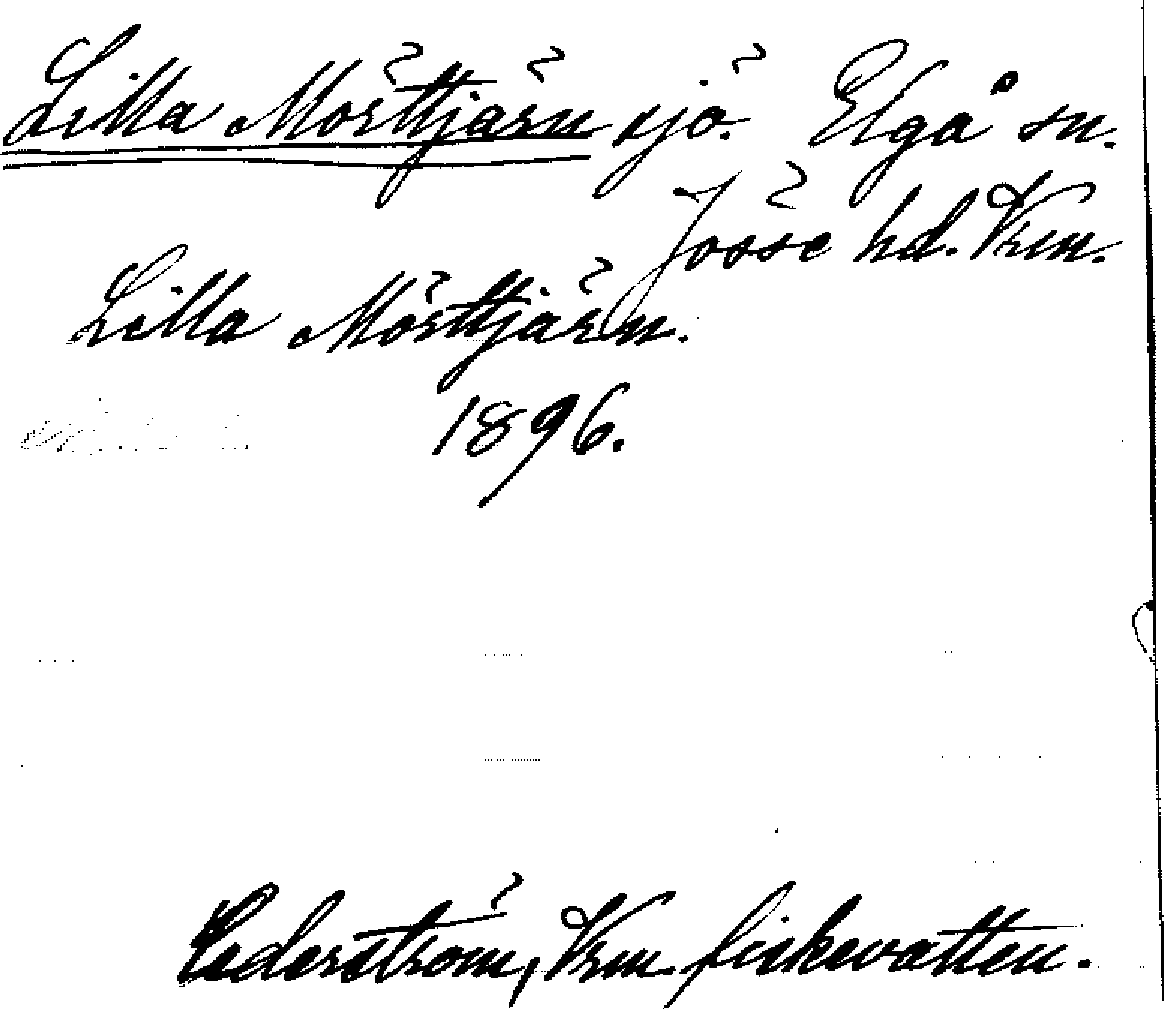 Lilla Mörttjärn sjö. Elgå sn.
Jösse hd. Vrm.
Lilla Mörttjärn.
1896.
Cederström, Vrm. fiskevatten.